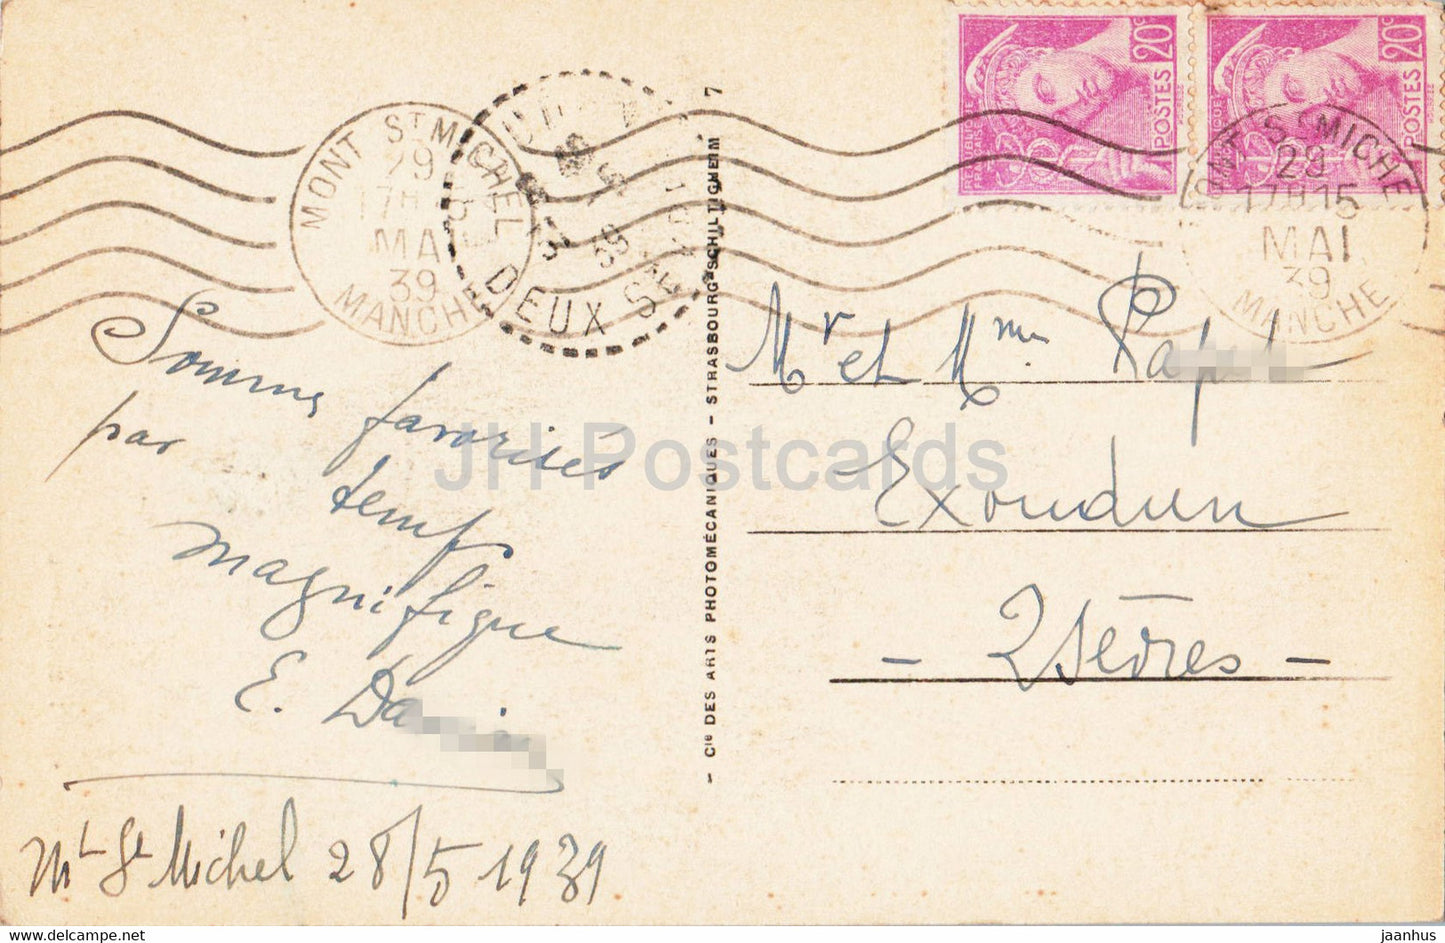 20c
POSTES
20c
POSTES
MONT ST MICHEL
29
17H15
MAI
39
MANCHE
DEUX S
ST MICHEL
29
17H15
MAI
39
MANCHE
7
Somme favorisés
par temps
magnifique
E. Da
Mt St Michel 28/5 1939
- Cie DES ARTS PHOTOMÉCANIQUES - STRASBOURG-SCHILTIGHEIM
Mr et Mme
Exoudun
- 2 Sèvres -
JH Postcards
jaanhus - https://www.jaanhus.com